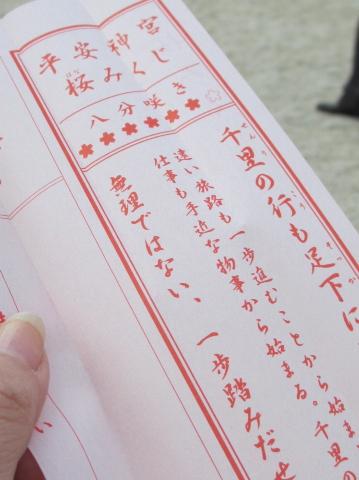 平安神宮
桜みくじ
はな
八分咲き
千里の行も足下に
せんり
遠い旅路も一歩進むことから始ま
仕事も手近な物事から始まる。千里の
無理ではない、一歩踏みだせ
い